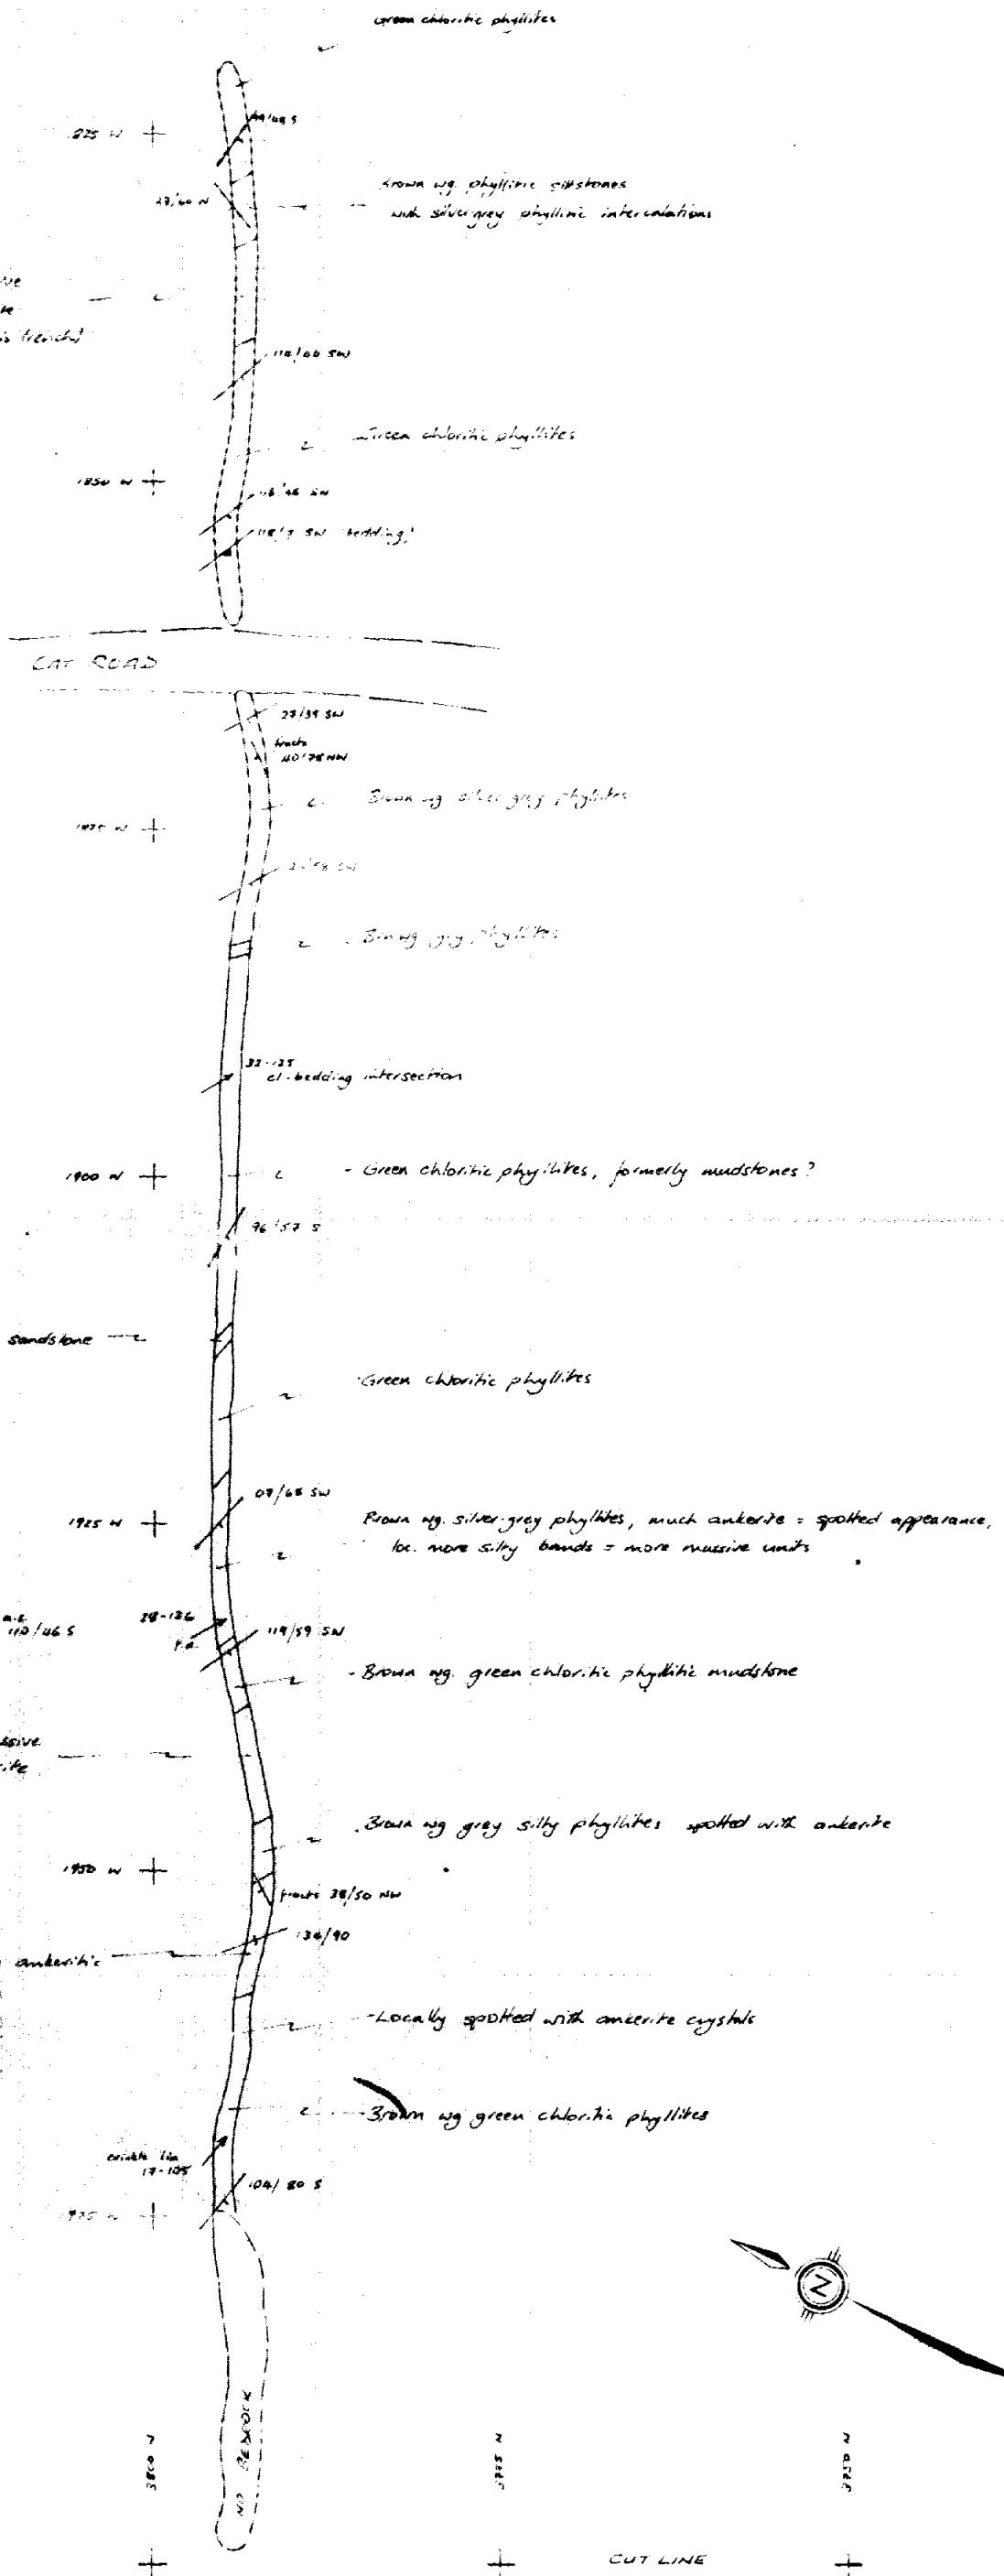 Green chloritic phyllites
1825 W
27/60 N
Brown wg. phyllitic siltstones
with silver grey phyllitic intercalations
trench)
114/44 SW
Green chloritic phyllites
1850 W
SW
SW (bedding)
CAT ROAD
39 SW
fracts
40/75 NW
Brown wg silver grey phyllites
1875 W
SW
Brn wg grey phyllites
32-125
cl-bedding intersection
1900 W
- Green chloritic phyllites, formerly mudstones?
96/57 S
sandstone
Green chloritic phyllites
07/68 SW
1925 W
Brown wg. silver-grey phyllites, much ankerite = spotted appearance,
loc. more silty bands = more massive units
110/46 S
28-126
119/59 SW
- Brown wg. green chloritic phyllitic mudstone
Brown wg grey silty phyllites spotted with ankerite
1950 W
fracts 38/50 NW
134/90
ankeritic
-Locally spotted with ankerite crystals
-Brown wg green chloritic phyllites
crinkle lin
17-105
104/80 S
1975 W
NO BEDROCK
3800 N
3775 N
3750 N
N
CUT LINE